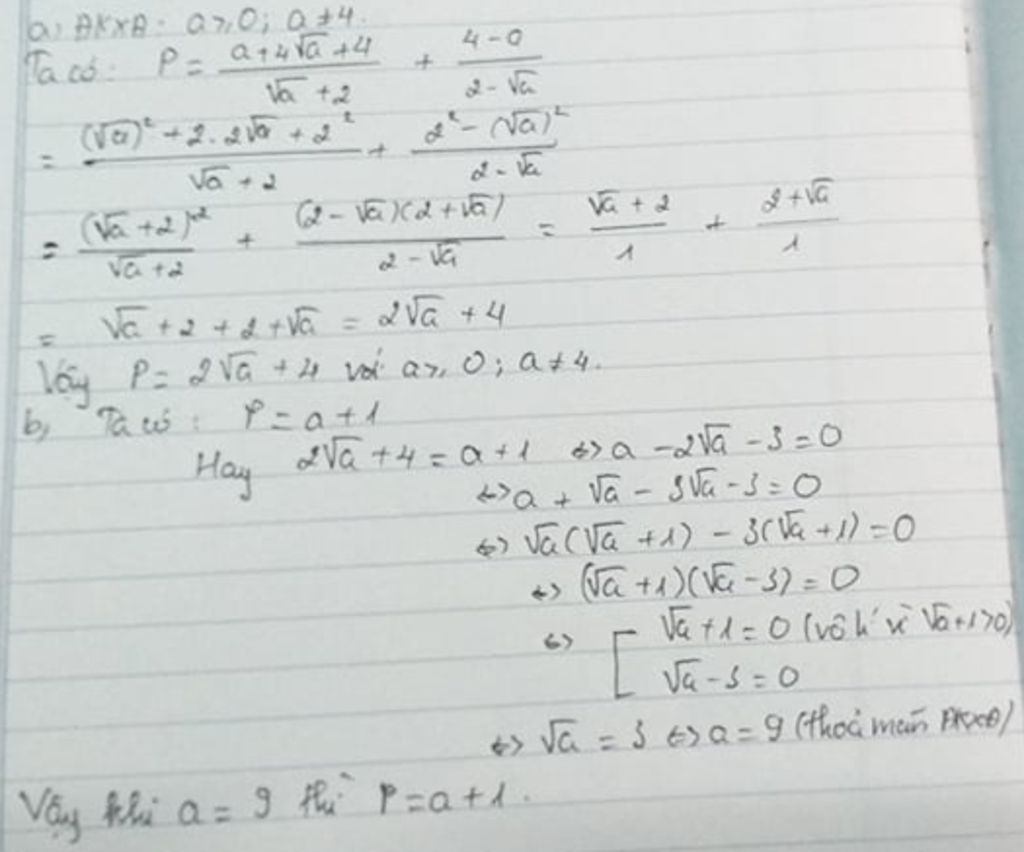 a, ĐKXĐ: a ≥ 0; a ≠ 4.
Ta có: P = (a + 4√a + 4)/(√a + 2) + (4 - a)/(2 - √a)
= ((√a)² + 2.2√a + 2²)/(√a + 2) + (2² - (√a)²)/(2 - √a)
= (√a + 2)²/(√a + 2) + ((2 - √a)(2 + √a))/(2 - √a) = (√a + 2)/1 + (2 + √a)/1
= √a + 2 + 2 + √a = 2√a + 4
Vậy P = 2√a + 4 với a ≥ 0; a ≠ 4.
b, Ta có: P = a + 1
Hay 2√a + 4 = a + 1 <=> a - 2√a - 3 = 0
<=> a + √a - 3√a - 3 = 0
<=> √a(√a + 1) - 3(√a + 1) = 0
<=> (√a + 1)(√a - 3) = 0
<=> [ √a + 1 = 0 (vô lí vì √a + 1 > 0)
√a - 3 = 0
<=> √a = 3 <=> a = 9 (thoả mãn ĐKXĐ)
Vậy khi a = 9 thì P = a + 1.